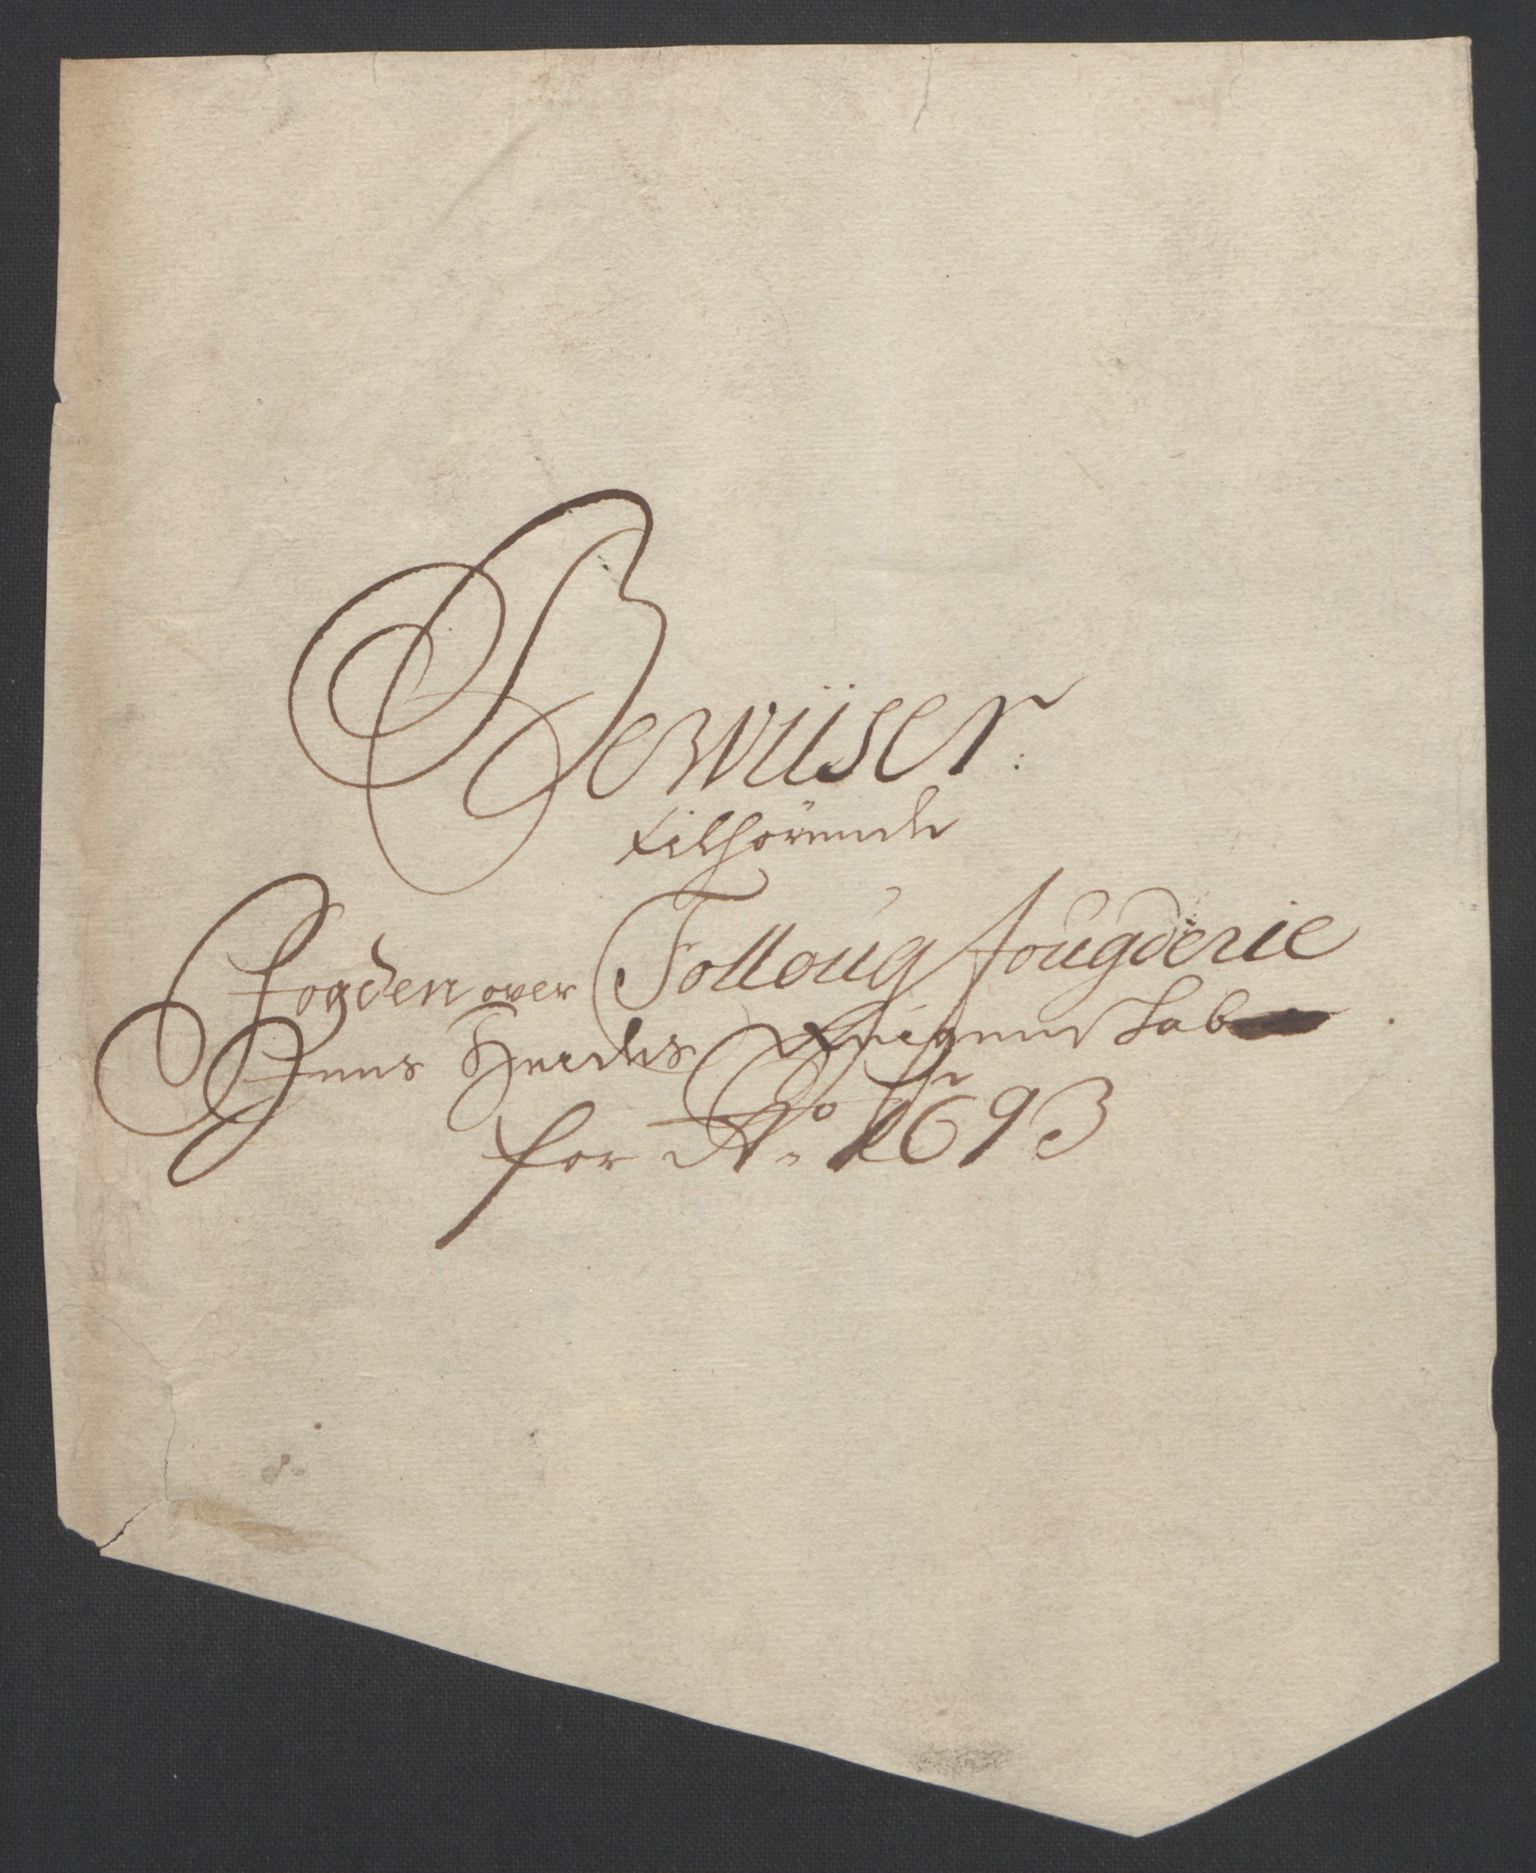 Bewiiser
tilhörende
Fogden over Folloug fougderie
Jens Heides Reigenskab
for Aо 1693